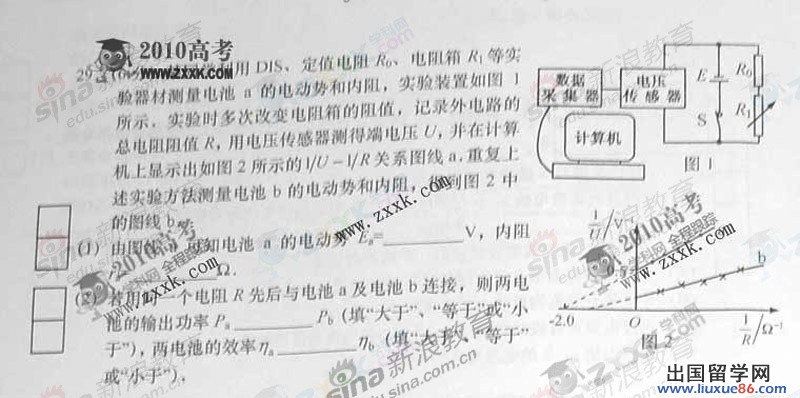 2010高考
www.zxxk.com
29.
用 DIS、定值电阻 R₀、电阻箱 R₁ 等实
验器材测量电池 a 的电动势和内阻，实验装置如图 1
所示．实验时多次改变电阻箱的阻值，记录外电路的
总电阻阻值 R，用电压传感器测得端电压 U，并在计算
机上显示出如图 2 所示的 1/U－1/R 关系图线 a．重复上
述实验方法测量电池 b 的电动势和内阻，得到图 2 中
的图线 b．
(1) 由图线 可知电池 a 的电动势 Eₐ=________V，内阻
Ω．
(2) 若用 一个电阻 R 先后与电池 a 及电池 b 连接，则两电
池的输出功率 Pₐ________P_b（填“大于”、“等于”或“小
于”），两电池的效率 ηₐ________η_b（填“大于”、“等于”
或“小于”）．
数据
采集器
电压
传感器
计算机
E
S
R₀
R₁
图 1
1/U /V⁻¹
b
-2.0
O
1/R /Ω⁻¹
图 2
2010高考
学科网 全程跟踪
www.zxxk.com
www.zxxk.com
2010高考
学科网 全程跟踪
www.zxxk.com
sina新浪教育
edu.sina.com.cn
出国留学网
www.liuxue86.com